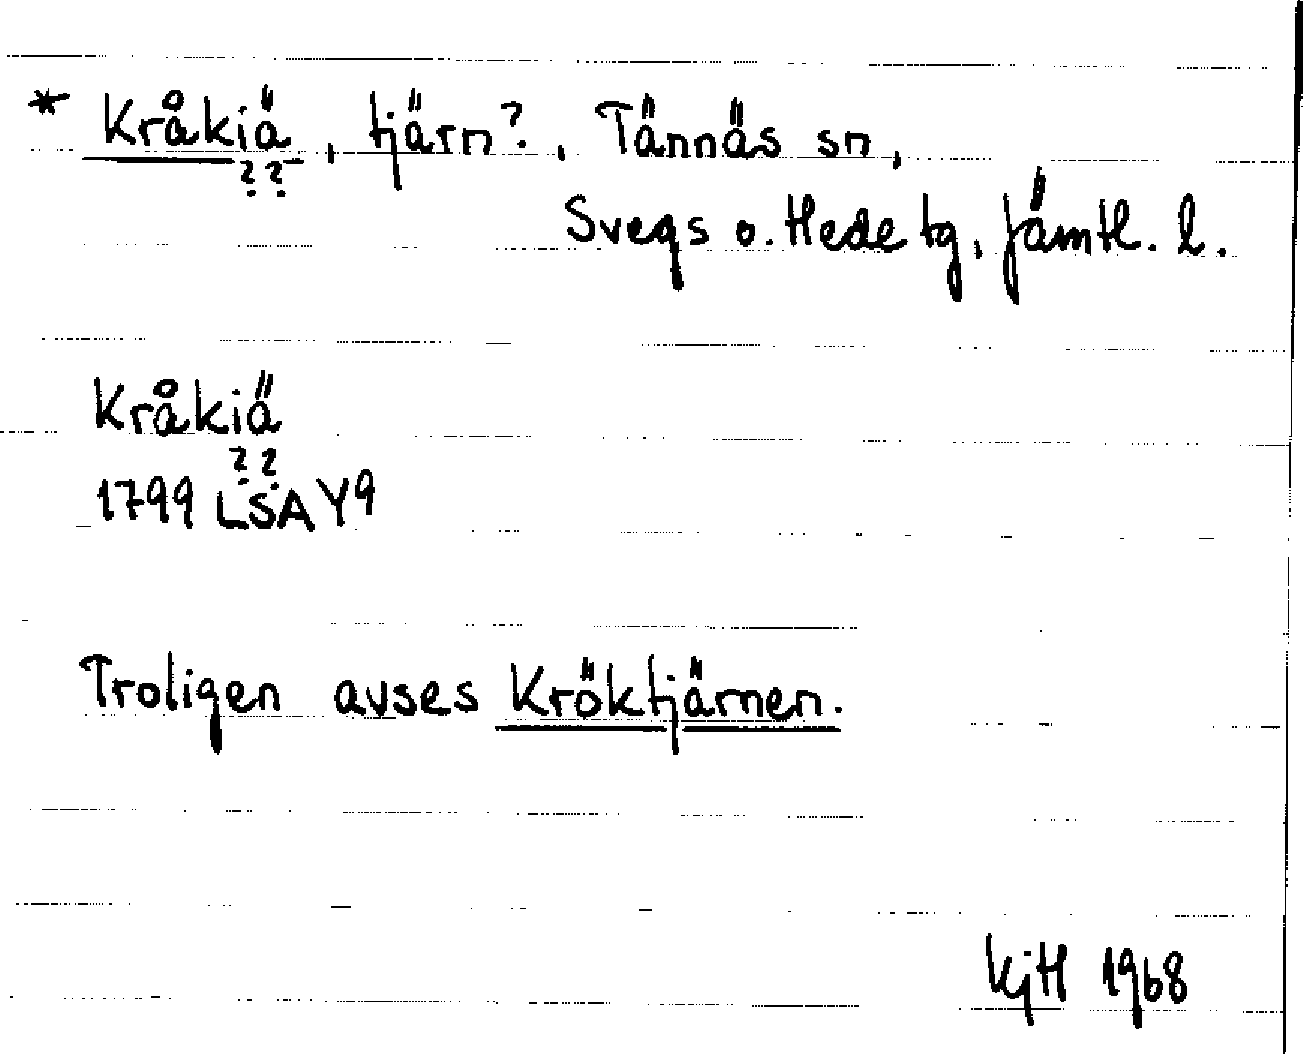 * Kråkiä, tjärn?, Tännäs sn,
? ?
Svegs o. Hede tg, Jämtl. l.
Kråkiä
? ?
1799 LSA Y9
Troligen avses Kröktjärnen.
KjH 1968